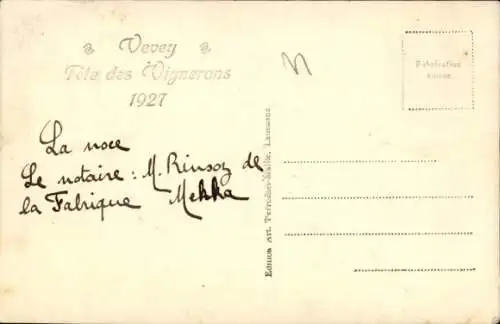 Vevey
Fête des Vignerons
1927
La noce
Le notaire : M. Rinsoz de
la Fabrique Mekka
Edition Art. Perrochet-Matile, Lausanne